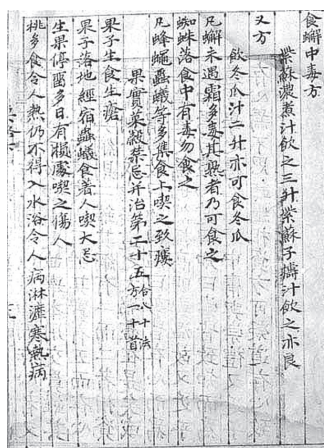 食蠏中毒方
紫蘇濃煮汁飲之三升紫蘇子擣汁飲之亦良
又方
飲冬瓜汁二升亦可食冬瓜
凡蠏未遇霜多毒其熟者乃可食之
蜘蛛落食中有毒勿食之
凡蜂蠅蟲蟻等多集食上喫之致瘻
果實菜穀禁忌并治第二十五
果子生食生瘡
果子落地經宿蟲蟻食者人喫大忌
生果停留多日有損處喫之傷人
桃多食令人熱仍不得入水浴令人病淋瀝寒熱病